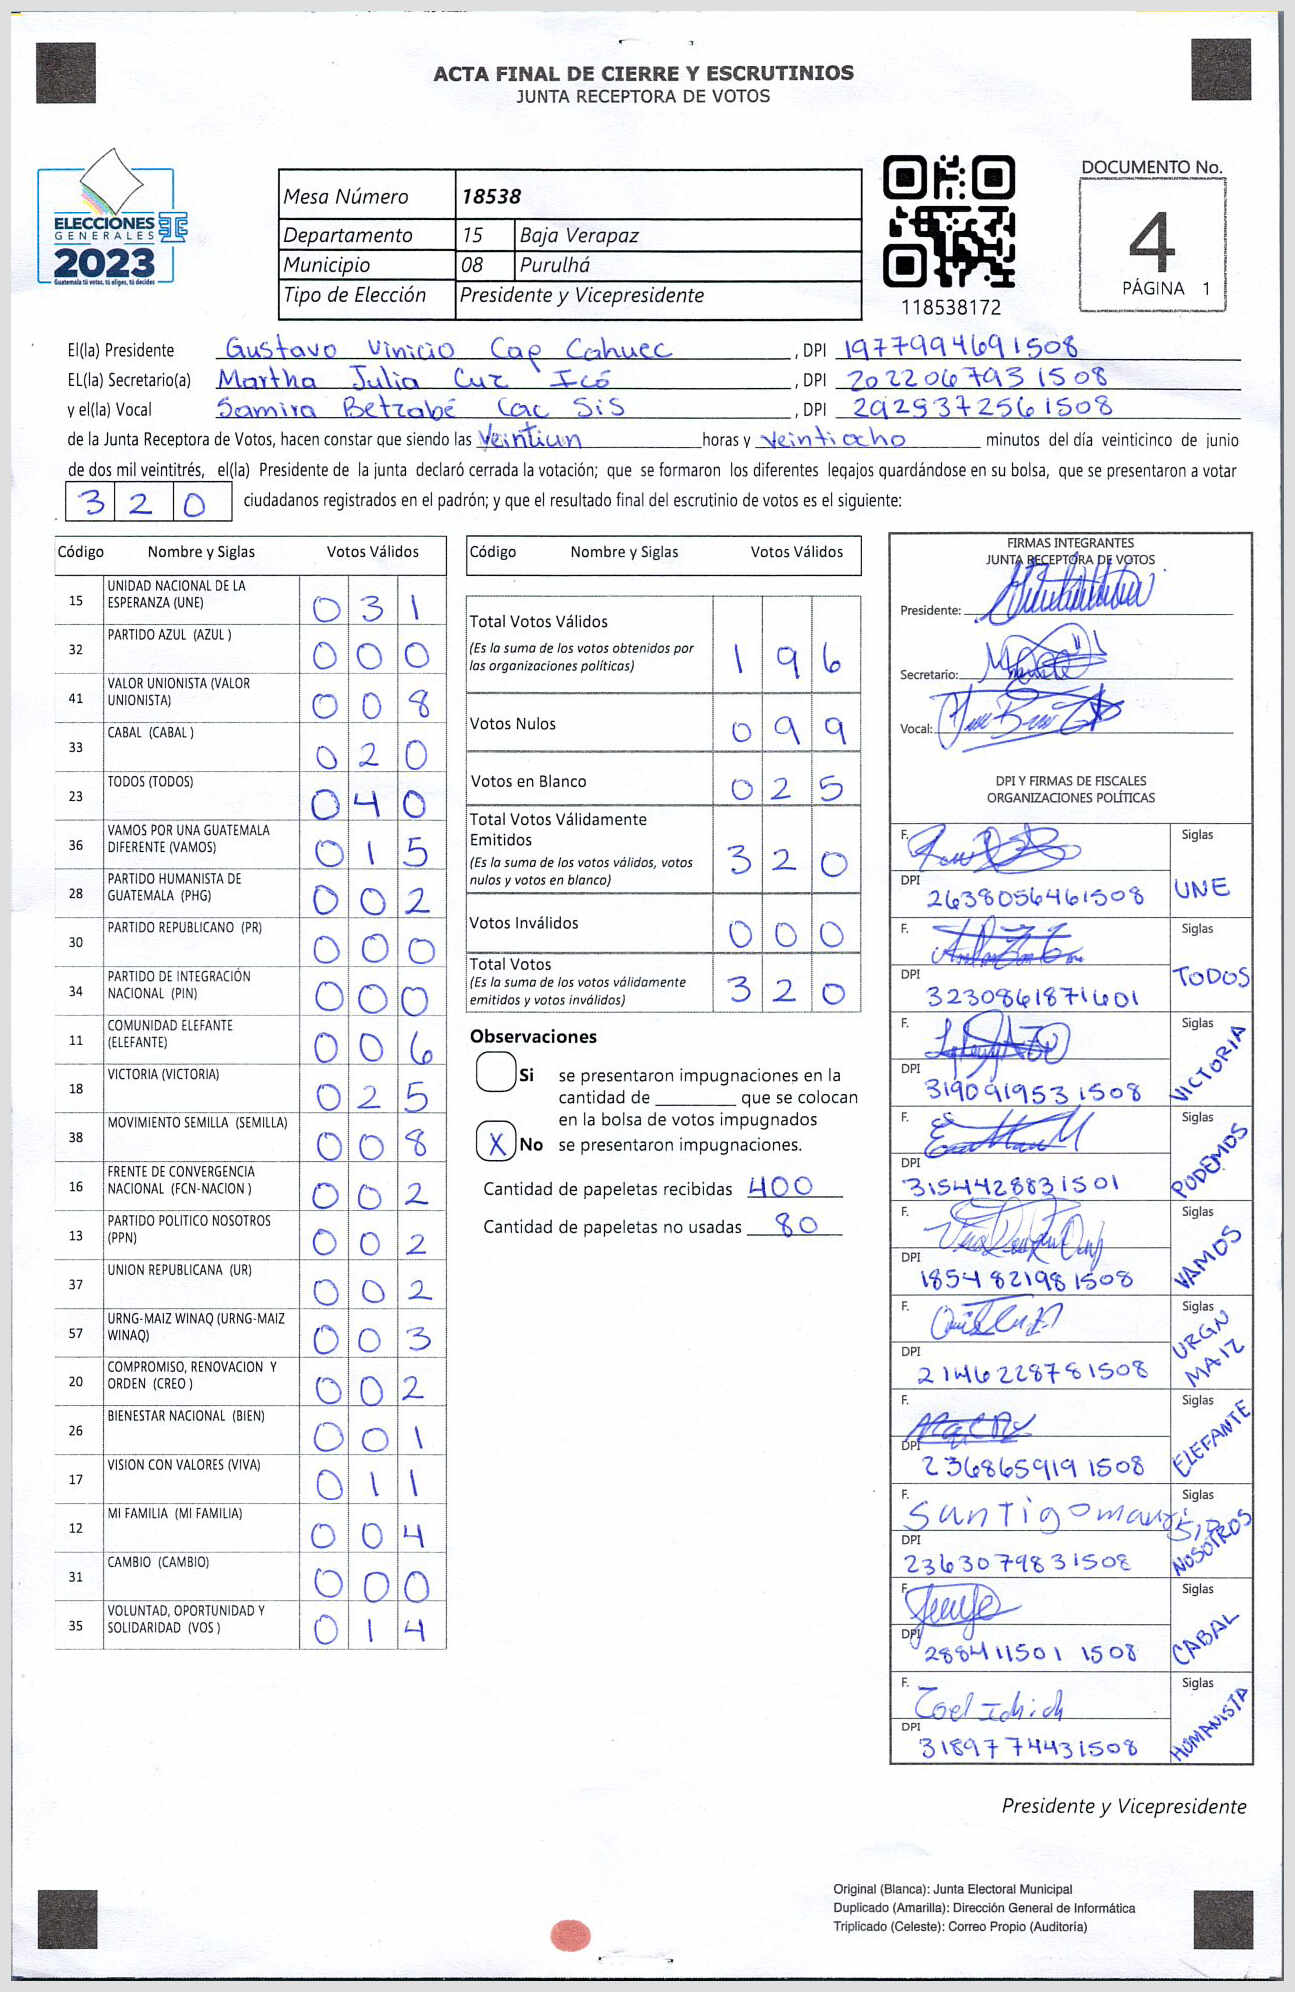 ACTA FINAL DE CIERRE Y ESCRUTINIOS
JUNTA RECEPTORA DE VOTOS
ELECCIONES
GENERALES
2023
Guatemala tú votas, tú eliges, tú decides
Mesa Número 18538
Departamento 15 Baja Verapaz
Municipio 08 Purulhá
Tipo de Elección Presidente y Vicepresidente
118538172
DOCUMENTO No.
4
PÁGINA 1
El(la) Presidente Gustavo Vinicio Cap Cahuec, DPI 1977994691508
EL(la) Secretario(a) Martha Julia Cuz Icó, DPI 2022067931508
y el(la) Vocal Samira Betzabé Cac Sis, DPI 2929372561508
de la Junta Receptora de Votos, hacen constar que siendo las Veintiun horas y veintiocho minutos del día veinticinco de junio
de dos mil veintitrés, el(la) Presidente de la junta declaró cerrada la votación; que se formaron los diferentes legajos guardándose en su bolsa, que se presentaron a votar
320 ciudadanos registrados en el padrón; y que el resultado final del escrutinio de votos es el siguiente:
Código Nombre y Siglas Votos Válidos
15 UNIDAD NACIONAL DE LA ESPERANZA (UNE) 031
32 PARTIDO AZUL (AZUL ) 000
41 VALOR UNIONISTA (VALOR UNIONISTA) 008
33 CABAL (CABAL ) 020
23 TODOS (TODOS) 040
36 VAMOS POR UNA GUATEMALA DIFERENTE (VAMOS) 015
28 PARTIDO HUMANISTA DE GUATEMALA (PHG) 002
30 PARTIDO REPUBLICANO (PR) 000
34 PARTIDO DE INTEGRACIÓN NACIONAL (PIN) 000
11 COMUNIDAD ELEFANTE (ELEFANTE) 006
18 VICTORIA (VICTORIA) 025
38 MOVIMIENTO SEMILLA (SEMILLA) 008
16 FRENTE DE CONVERGENCIA NACIONAL (FCN-NACION ) 002
13 PARTIDO POLITICO NOSOTROS (PPN) 002
37 UNION REPUBLICANA (UR) 002
57 URNG-MAIZ WINAQ (URNG-MAIZ WINAQ) 003
20 COMPROMISO, RENOVACION Y ORDEN (CREO ) 002
26 BIENESTAR NACIONAL (BIEN) 001
17 VISION CON VALORES (VIVA) 011
12 MI FAMILIA (MI FAMILIA) 004
31 CAMBIO (CAMBIO) 000
35 VOLUNTAD, OPORTUNIDAD Y SOLIDARIDAD (VOS ) 014
Código Nombre y Siglas Votos Válidos
Total Votos Válidos
(Es la suma de los votos obtenidos por las organizaciones políticas) 196
Votos Nulos 099
Votos en Blanco 025
Total Votos Válidamente Emitidos
(Es la suma de los votos válidos, votos nulos y votos en blanco) 320
Votos Inválidos 000
Total Votos
(Es la suma de los votos válidamente emitidos y votos inválidos) 320
Observaciones
Si se presentaron impugnaciones en la
cantidad de ________ que se colocan
en la bolsa de votos impugnados
X No se presentaron impugnaciones.
Cantidad de papeletas recibidas 400
Cantidad de papeletas no usadas 80
FIRMAS INTEGRANTES
JUNTA RECEPTORA DE VOTOS
Presidente:
Secretario:
Vocal:
DPI Y FIRMAS DE FISCALES
ORGANIZACIONES POLÍTICAS
F. Siglas
DPI 2638056461508 UNE
F. Siglas
DPI 3230861871601 TODOS
F. Siglas
DPI 3190919531508 VICTORIA
F. Siglas
DPI 3154428831501 PODEMOS
F. Siglas
DPI 1854821981508 VAMOS
F. Siglas
DPI 2146228781508 URGN MAIZ
F. Siglas
DPI 2368659191508 ELEFANTE
F. Siglas
DPI 2363079831508 NOSOTROS
F. Siglas
DPI 2884115011508 CABAL
F. Siglas
DPI 3189774431508 HUMANISTA
Presidente y Vicepresidente
Original (Blanca): Junta Electoral Municipal
Duplicado (Amarilla): Dirección General de Informática
Triplicado (Celeste): Correo Propio (Auditoría)